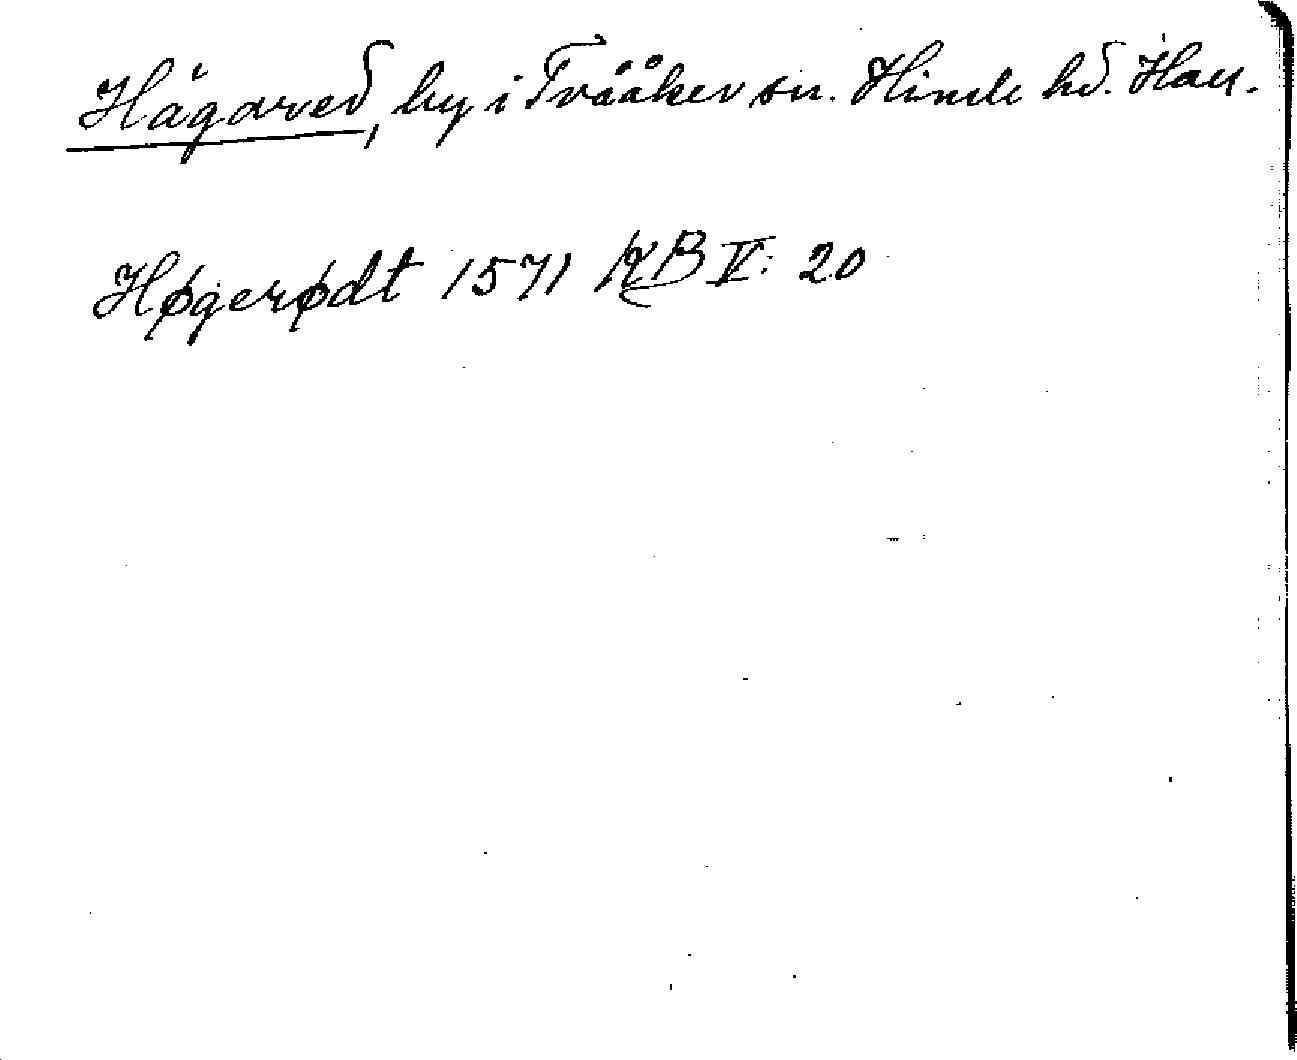 Hågared, by i Tvååker sn. Himle hd. Hall.
Høgerødt 1571 KB V: 20